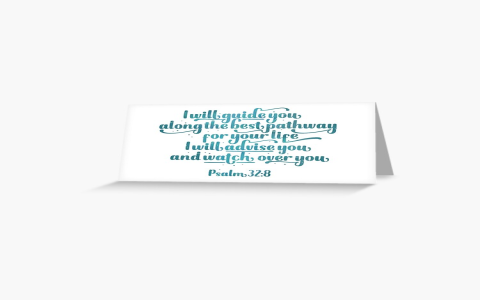 I will guide you
along the best pathway
for your life
I will advise you
and watch over you
Psalm 32:8